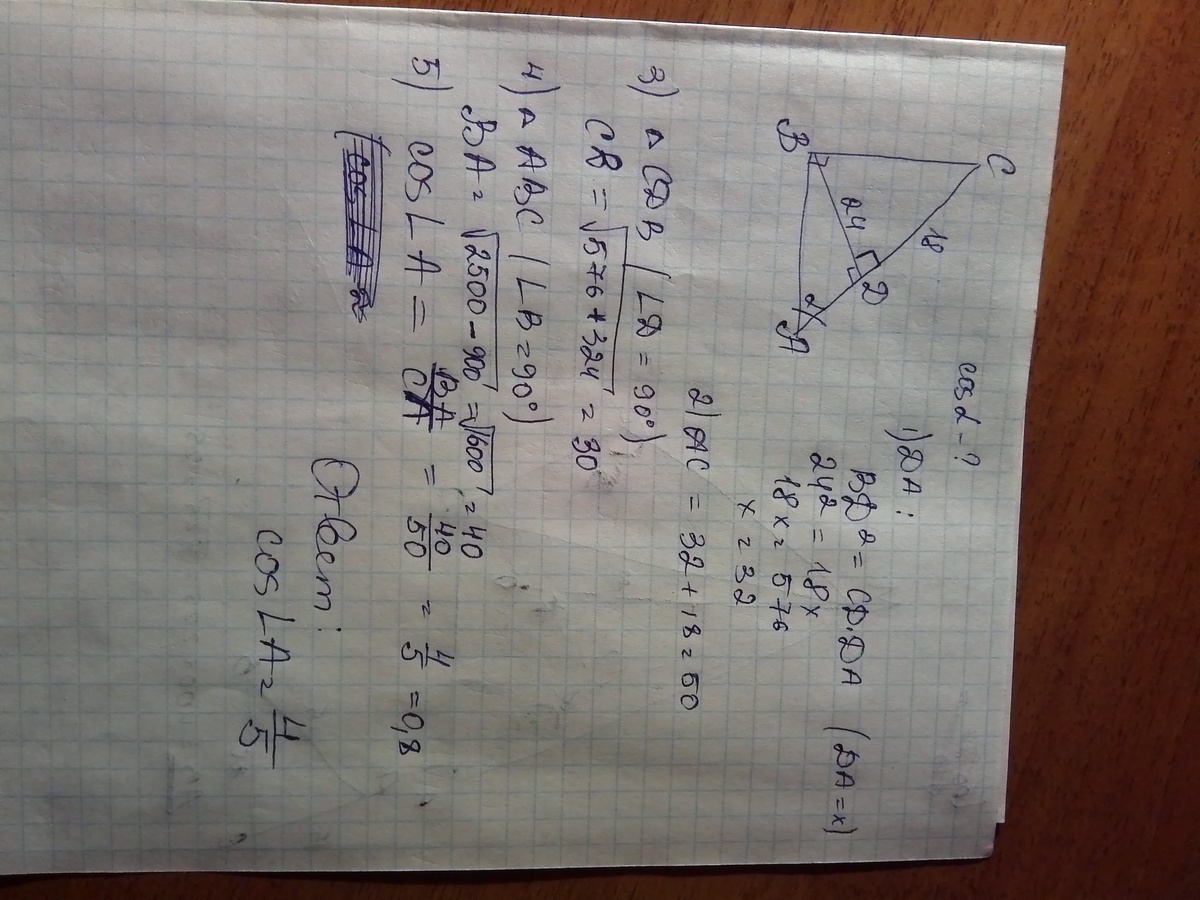 C
18
D
24
B
α
A
cos α - ?
1) DA:
BD² = CD·DA (DA = x)
24² = 18x
18x = 576
x = 32
2) AC = 32 + 18 = 50
3) △ CDB (∠D = 90°)
CB = √576 + 324 = 30
4) △ ABC (∠B = 90°)
BA = √2500 - 900 = √1600 = 40
5) cos ∠A = BA/CA = 40/50 = 4/5 = 0,8
Ответ:
cos ∠A = 4/5